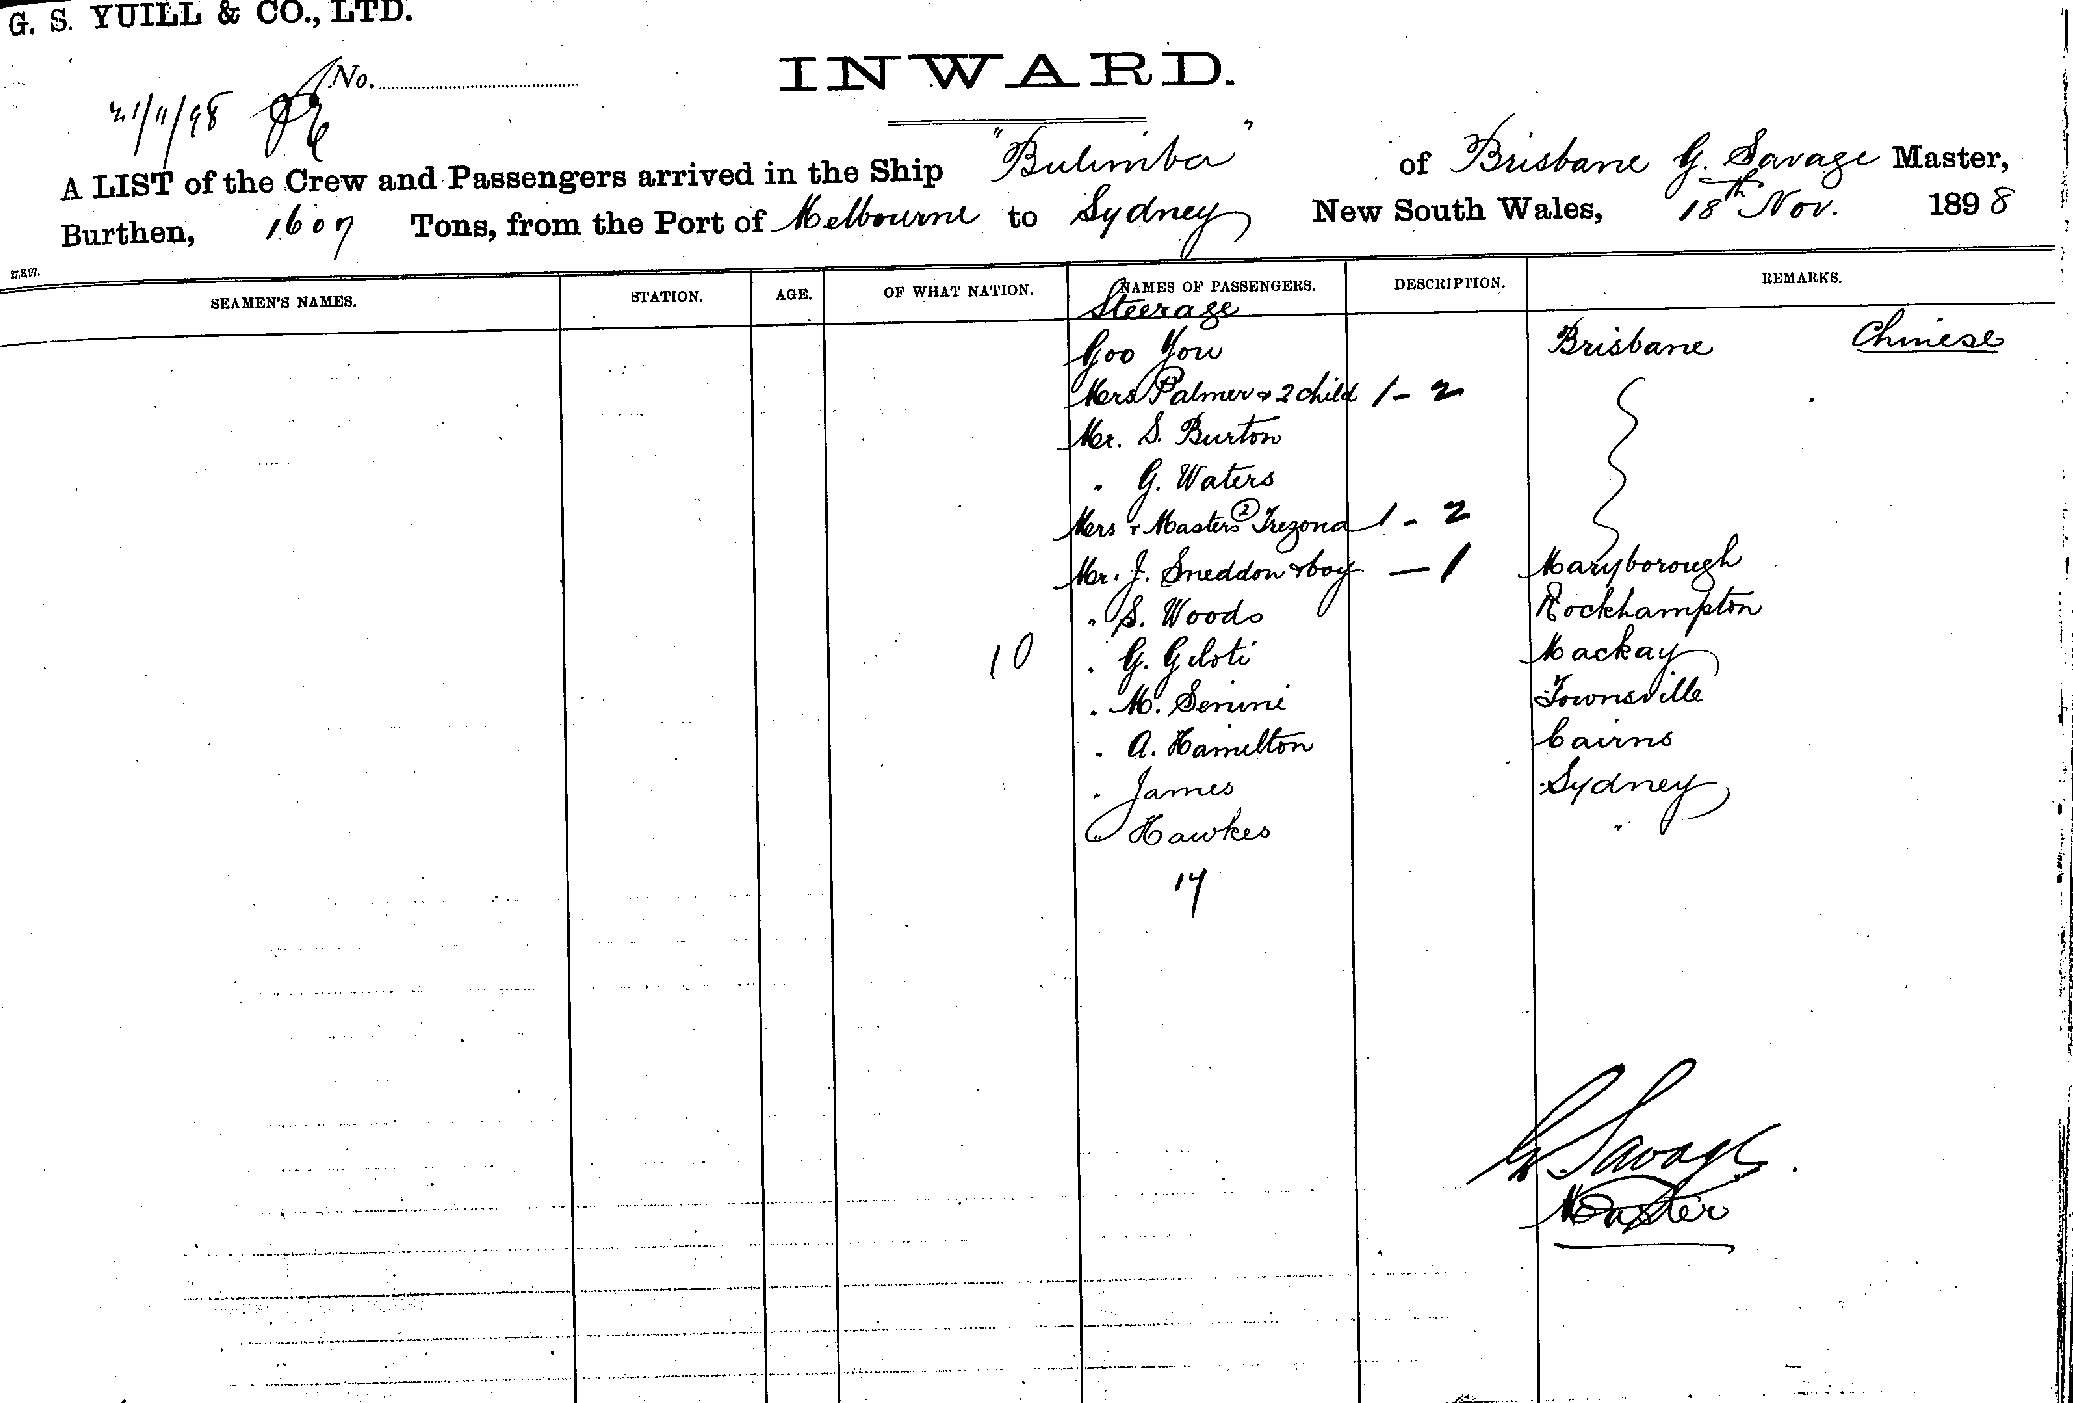 G. S. YUILL & CO., LTD.
No.
INWARD.
21/11/98
A LIST of the Crew and Passengers arrived in the Ship "Bulimba" of Brisbane G. Savage Master,
Burthen, 1607 Tons, from the Port of Melbourne to Sydney New South Wales, 18th Nov. 1898
SEAMEN'S NAMES. STATION. AGE. OF WHAT NATION. NAMES OF PASSENGERS. DESCRIPTION. REMARKS.
Steerage
Goo You Brisbane Chinese
Mrs Palmer & 2 child 1 - 2
Mr. S. Burton
" G. Waters
Mrs & Masters 2 Trezona 1 - 2
Mr. J. Sneddon & boy — 1 Maryborough
" S. Woods Rockhampton
10 " G. Giloti Mackay
" M. Senini Townsville
" A. Hamilton Cairns
" James Sydney
" Hawkes "
17
G. Savage.
Master